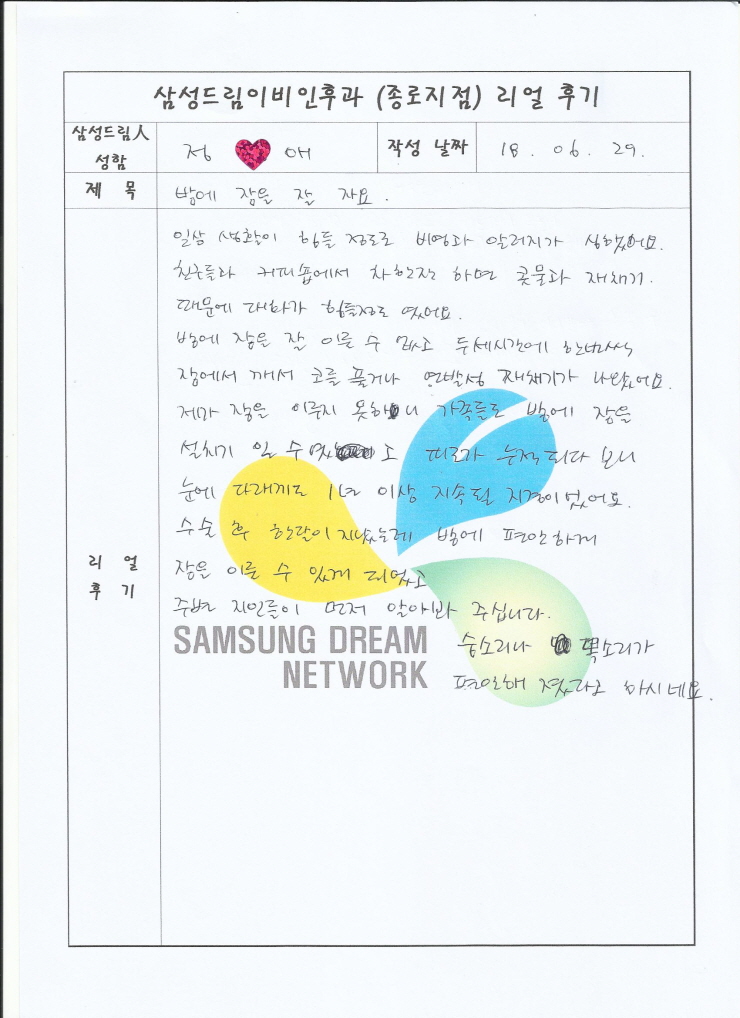 삼성드림이비인후과 (종로지점) 리얼 후기
삼성드림人
성함
정 애
작성 날짜
18. 06. 29.
제 목
밤에 잠을 잘 자요.
리 얼
후 기
일상 생활이 힘들 정도로 비염과 알러지가 심했어요.
친구들과 커피숍에서 차한잔 하면 콧물과 재채기
때문에 대화가 힘들정도 였어요.
밤에 잠을 잘 이룰 수 없고 두세시간에 한번씩
잠에서 깨서 코를 풀거나 연발성 재채기가 나왔어요.
제가 잠을 이루지 못하니 가족들도 밤에 잠을
설치기 일 수 였고 피로가 누적되다 보니
눈에 다래끼도 1년 이상 지속될 지경이었어요.
수술 후 한달이 지났는데 밤에 편안하게
잠을 이룰 수 있게 되었고
주변 지인들이 먼저 알아봐 주십니다.
숨소리나 목소리가
편안해 졌다고 하시네요.
SAMSUNG DREAM
NETWORK